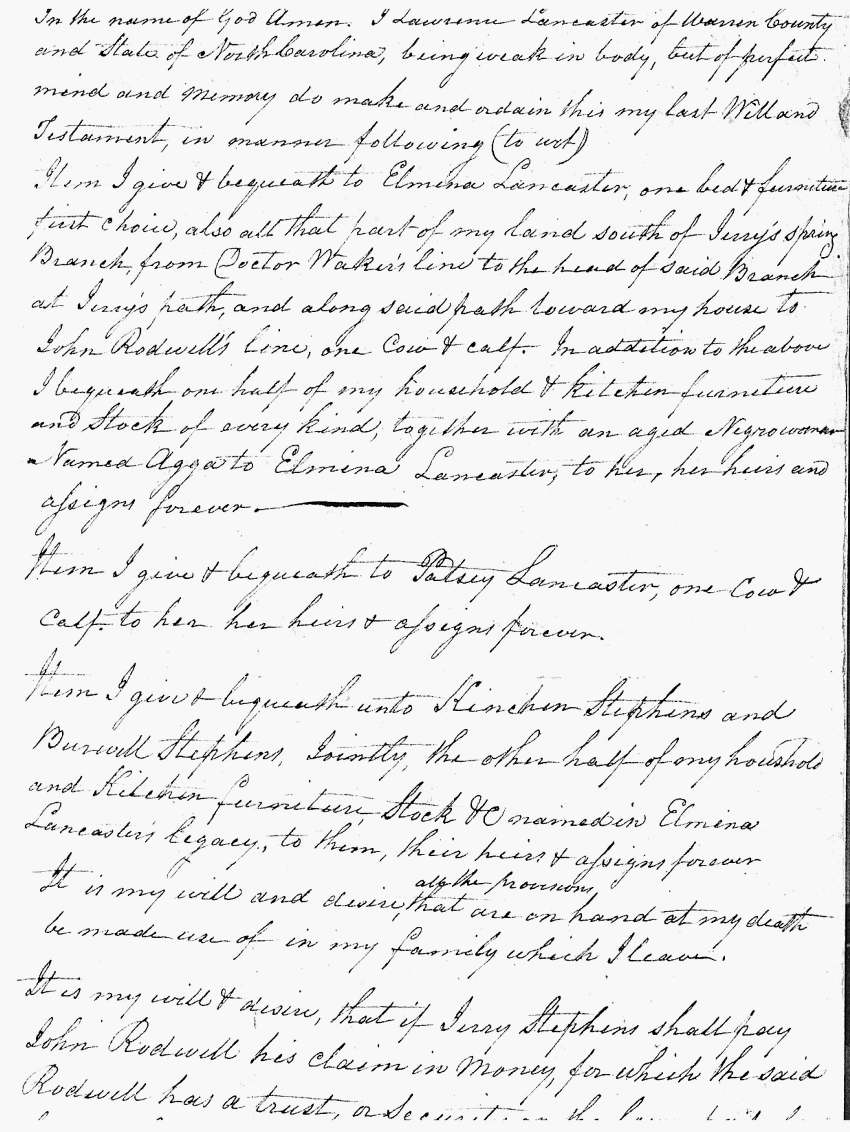 In the name of God Amen. I Lawrence Lancaster of Warren County
and State of North Carolina, being weak in body, but of perfect
mind and memory do make and ordain this my last Will and
Testament, in manner following (to wit)
Item I give & bequeath to Elmina Lancaster, one bed & furniture
first choice, also all that part of my land south of Jerry's spring
Branch, from Doctor Waker's line to the head of said Branch
at Jerry's path, and along said path toward my house to
John Rodwell's line, one Cow & calf. In addition to the above
I bequeath one half of my household & kitchen furneture
and Stock of every kind, together with an aged Negro woman
Named Agga to Elmina Lancaster, to her, her heirs and
assigns forever.
Item I give & bequeath to Patsey Lancaster, one Cow &
Calf. to her her heirs & assigns forever.
Item I give & bequeath unto Kinchen Stephens and
Burwell Stephens, Jointly, the other half of my houshold
and Kitchen furniture, Stock &c named in Elmina
Lancaster's legacy, to them, their heirs & assigns forever
all the provisions
It is my will and desire, that are on hand at my death
be made use of in my family which I leave.
It is my will & desire, that if Jerry Stephens shall pay
John Rodwell his claim in Money, for which the said
Rodwell has a trust, or